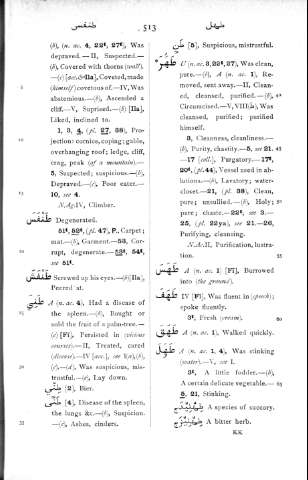 طهمل 513 طنفنس
(b), (n. ac. 4, 22ᵗ, 27ᵗ), Was
depraved.—II, Suspected.—
(b), Covered with thorns (wall).
—(c) [ac.&IIa], Coveted, made
(himself) covetous of.—IV, Was
abstemious.—(b), Ascended a
cliff.—V, Suprised.—(b) [IIa],
Liked, inclined to.
1, 3, 4, (pl. 27, 38), Pro-
jection: cornice, coping; gable,
overhanging roof; ledge, cliff,
crag, peak (of a mountain).—
5, Suspected; suspicious.—(b),
Depraved.—(c), Poor eater.—
10, see 4.
N.Ag.IV, Climber.
طنفس Degenerated.
51ᵗ, 52ᵗ, (pl. 47), P., Carpet;
mat.—(b), Garment.—53, Cor-
rupt, degenerate.—52ᵗ, 54ᵗ,
see 51ᵗ.
Screwed up his eyes.—(b)[IIa],
Peered at.
A (n. ac. 4), Had a disease of
the spleen.—(b), Bought or
sold the fruit of a palm-tree.—
(c) [Fi], Persisted in (vicious
courses).—II, Treated, cured
(disease).—IV [acc.], see I(a),(b),
(c),—(d), Was suspicious, mis-
trustful.—(e), Lay down.
[2], Bier.
[4], Disease of the spleen,
the lungs &c.—(b), Suspicion.
—(c), Ashes, cinders.
[5], Suspicious, mistrustful.
طهر U (n. ac. 3, 22ᵗ, 27), Was clean,
pure.—(b), A (n. ac. 1), Re-
moved, sent away.—II, Clean-
ed, cleansed, purified.—(b),
Circumcised.—V, VIII(ط), Was
cleansed, purified; purified
himself.
3, Cleanness, cleanliness.—
(b), Purity, chastity.—5, see 21.
—17 [coll.], Purgatory.—17ᵗ,
20ᵗ, (pl. 44), Vessel used in ab-
lutions.—(b), Lavatory; water-
closet.—21, (pl. 38), Clean,
pure; unsullied.—(b), Holy;
pure; chaste.—22ᵗ, see 3.—
25, (pl. 22ya), see 21.—26,
Purifying, cleansing.
N.Ac.II, Purification, lustra-
tion.
A (n. ac. 1) [Fi], Burrowed
into (the ground).
IV [Fi], Was fluent in (speech);
spoke fluently.
3ᵗ, Fresh (cream).
A (n. ac. 1), Walked quickly.
طهل A (n. ac. 1, 4), Was stinking
(water).—V, see I.
3ᵗ, A little fodder.—(b),
A certain delicate vegetable.—
5, 21, Stinking.
A species of succory.
A bitter herb.
KK